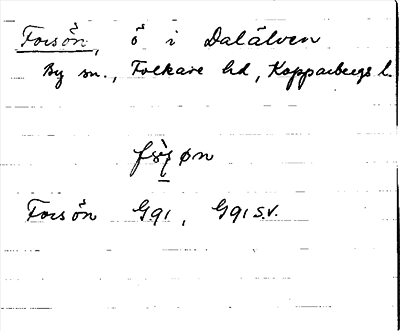 Forsön, ö i Dalälven
By sn., Folkare hd, Kopparbergs l.
Forsön Gg1, Gg1 s.v.